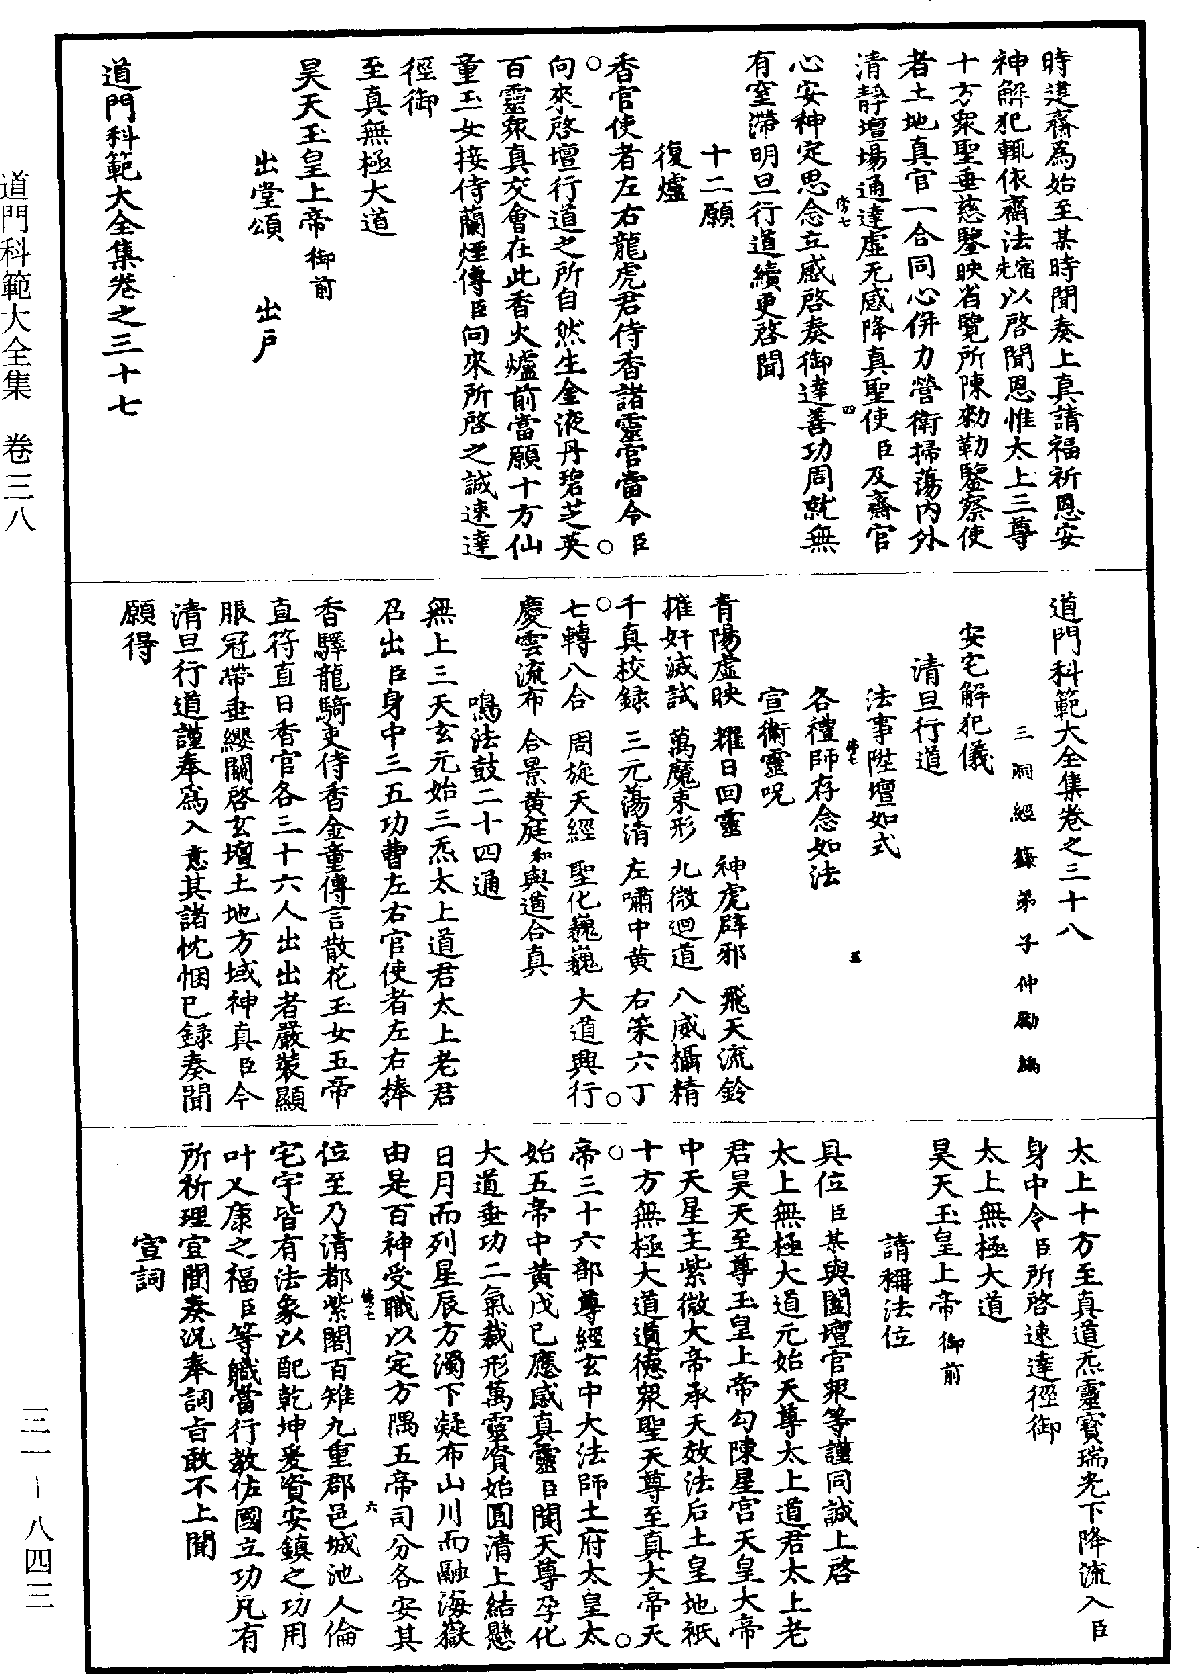 時建齋為始至某時聞奏上真請福祈恩安
神解犯輒依齋法宿先以啓聞恩惟太上三尊
十方衆聖垂慈鑒映省覽所陳勑勒鑒察使
者土地真官一合同心併力營衛掃蕩内外
清靜壇場通達虛无感降真聖使臣及齋官
修七
四
心安神定思念立感啓奏御達善功周就無
有窒滯明旦行道續更啓聞
十二願
復爐
香官使者左右龍虎君侍香諸靈官當令臣
向來啓壇行道之所自然生金液丹碧芝英
百靈衆真交會在此香火爐前當願十方仙
童玉女接侍蘭煙傳臣向來所啓之誠速達
徑御
至真無極大道
昊天玉皇上帝御前
出堂頌 出戶
道門科範大全集卷之三十七
道門科範大全集卷之三十八
三洞經籙弟子仲勵編
安宅解犯儀
清旦行道
法事陞壇如式
修七
五
各禮師存念如法
宣衛靈呪
青陽虛映 耀日回靈 神虎辟邪 飛天流鈴
摧奸滅試 萬魔束形 九微迴道 八威攝精
千真校錄 三元蕩清 左嘯中黄 右策六丁
七轉八合 周旋天經 聖化巍巍 大道興行
慶雲流布 合景黄庭 和與道合真
鳴法鼓二十四通
無上三天玄元始三炁太上道君太上老君
召出臣身中三五功曹左右官使者左右捧
香驛龍騎吏侍香金童傳言散花玉女五帝
直符直日香官各三十六人出出者嚴裝顯
服冠帶垂纓關啓玄壇土地方域神真臣今
清旦行道謹奉為入意其諸忱悃已録奏聞
願得
太上十方至真道炁靈寳瑞光下降流入臣
身中令臣所啓速達徑御
太上無極大道
昊天玉皇上帝御前
請稱法位
具位臣某與闔壇官衆等謹同誠上啓
太上無極大道元始天尊太上道君太上老
君昊天至尊玉皇上帝勾陳星宫天皇大帝
中天星主紫微大帝承天效法后土皇地祇
十方無極大道道德衆聖天尊至真大帝天
帝三十六部尊經玄中大法師土府太皇太
始五帝中黄戊己應感真靈臣聞天尊孕化
大道垂功二氣裁形萬靈資始圓清上結懸
日月而列星辰方濁下凝布山川而融海嶽
由是百神受職以定方隅五帝司分各安其
修七
六
位至乃清都紫閣百雉九重郡邑城池人倫
宅宇皆有法象以配乾坤爰資安鎮之功用
叶乂康之福臣等職當行教佐國立功凡有
所祈理宜聞奏況奉詞旨敢不上聞
宣詞
道門科範大全集 卷三八
三一－八四三